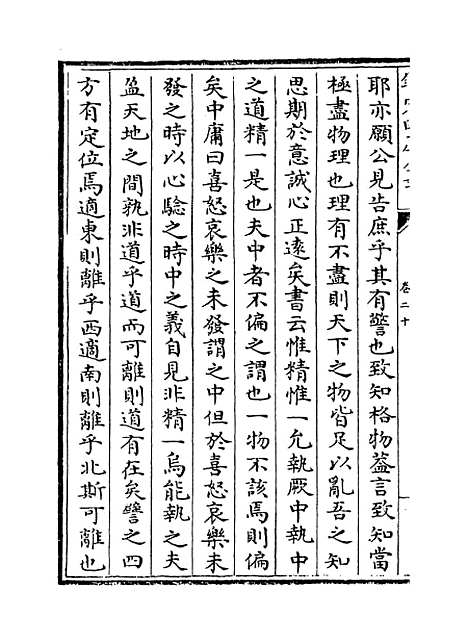 卷二十
耶亦願公見告庶乎其有警也致知格物蓋言致知當
極盡物理也理有不盡則天下之物皆足以亂吾之知
思期於意誠心正逺矣書云惟精惟一允執厥中執中
之道精一是也夫中者不偏之謂也一物不該焉則偏
矣中庸曰喜怒哀樂之未發謂之中但於喜怒哀樂未
發之時以心驗之時中之義自見非精一烏能執之夫
盈天地之間孰非道乎道而可離則道有在矣譬之四
方有定位焉適東則離乎西適南則離乎北斯可離也